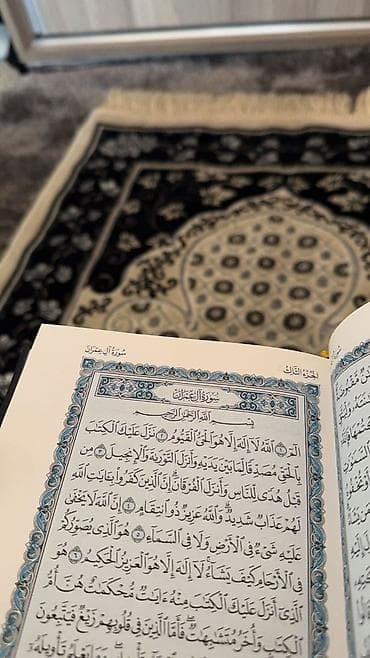 سُورَةُ آلِ عِمْرَانَ
الجُزْءُ الثَّالِثُ
سُورَةُ آلِ عِمْرَانَ
بِسْمِ اللَّهِ الرَّحْمَٰنِ الرَّحِيمِ
الٓمٓ ۝١ ٱللَّهُ لَآ إِلَٰهَ إِلَّا هُوَ ٱلْحَىُّ ٱلْقَيُّومُ ۝٢ نَزَّلَ عَلَيْكَ ٱلْكِتَٰبَ
بِٱلْحَقِّ مُصَدِّقًا لِّمَا بَيْنَ يَدَيْهِ وَأَنزَلَ ٱلتَّوْرَىٰةَ وَٱلْإِنجِيلَ ۝٣ مِن
قَبْلُ هُدًى لِّلنَّاسِ وَأَنزَلَ ٱلْفُرْقَانَ ۗ إِنَّ ٱلَّذِينَ كَفَرُوا۟ بِـَٔايَٰتِ ٱللَّهِ
لَهُمْ عَذَابٌ شَدِيدٌ ۗ وَٱللَّهُ عَزِيزٌ ذُو ٱنتِقَامٍ ۝٤ إِنَّ ٱللَّهَ لَا يَخْفَىٰ
عَلَيْهِ شَىْءٌ فِى ٱلْأَرْضِ وَلَا فِى ٱلسَّمَآءِ ۝٥ هُوَ ٱلَّذِى يُصَوِّرُكُمْ
فِى ٱلْأَرْحَامِ كَيْفَ يَشَآءُ ۚ لَآ إِلَٰهَ إِلَّا هُوَ ٱلْعَزِيزُ ٱلْحَكِيمُ ۝٦ هُوَ
ٱلَّذِىٓ أَنزَلَ عَلَيْكَ ٱلْكِتَٰبَ مِنْهُ ءَايَٰتٌ مُّحْكَمَٰتٌ هُنَّ أُمُّ
ٱلْكِتَٰبِ وَأُخَرُ مُتَشَٰبِهَٰتٌ ۖ فَأَمَّا ٱلَّذِينَ فِى قُلُوبِهِمْ زَيْغٌ فَيَتَّبِعُونَ